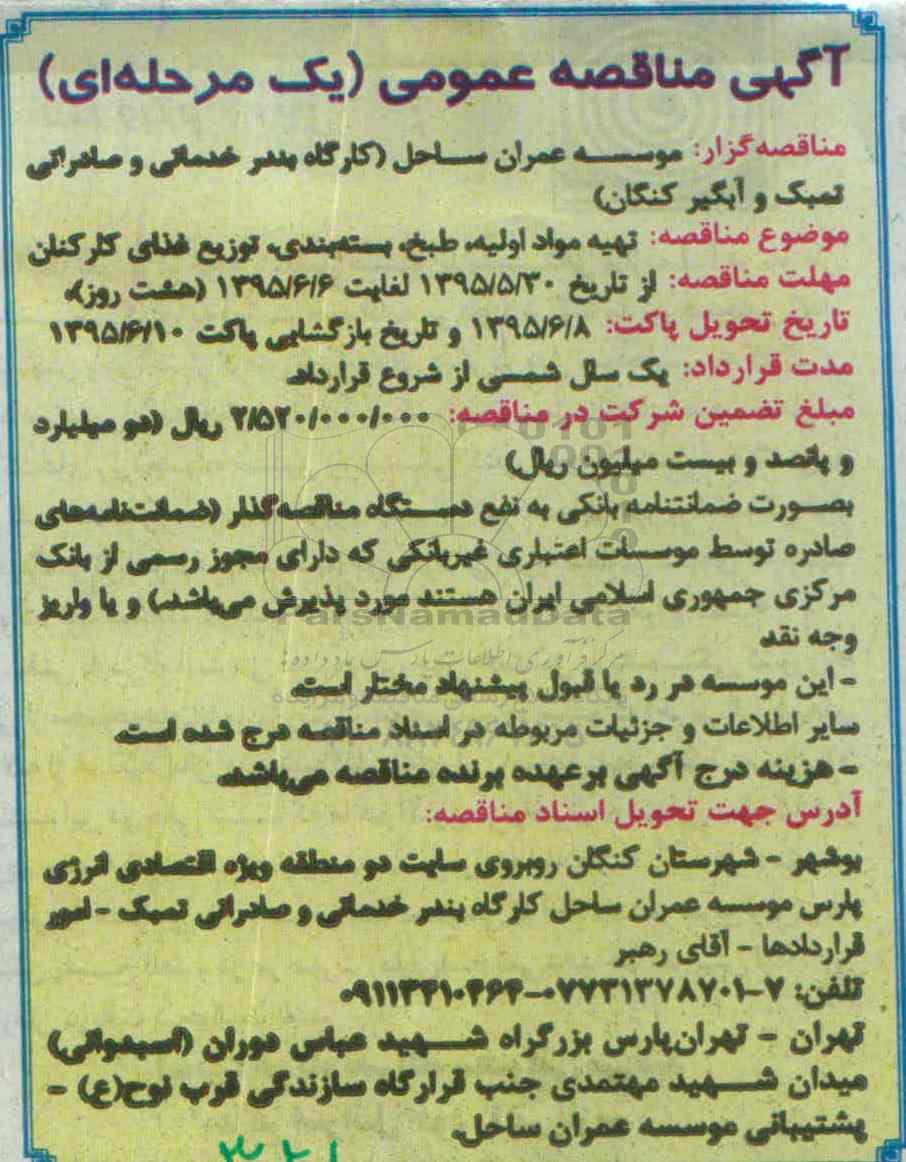 آگهی مناقصه عمومی (یک مرحله‌ای)
مناقصه‌گزار: موسسه عمران ساحل (کارگاه بندر خدماتی و صادراتی
تمبک و آبگیر کنگان)
موضوع مناقصه: تهیه مواد اولیه، طبخ، بسته‌بندی، توزیع غذای کارکنان
مهلت مناقصه: از تاریخ ۱۳۹۵/۵/۳۰ لغایت ۱۳۹۵/۶/۶ (هشت روز)،
تاریخ تحویل پاکت: ۱۳۹۵/۶/۸ و تاریخ بازگشایی پاکت ۱۳۹۵/۶/۱۰
مدت قرارداد: یک سال شمسی از شروع قرارداد.
مبلغ تضمین شرکت در مناقصه: ۲/۵۲۰/۰۰۰/۰۰۰ ریال (دو میلیارد
و پانصد و بیست میلیون ریال)
بصورت ضمانتنامه بانکی به نفع دستگاه مناقصه‌گذار (ضمانت‌نامه‌های
صادره توسط موسسات اعتباری غیربانکی که دارای مجوز رسمی از بانک
مرکزی جمهوری اسلامی ایران هستند مورد پذیرش می‌باشد.) و یا واریز
وجه نقد
ParsNamadData
مرکز فرآوری اطلاعات پارس نماد داده ها
- این موسسه در رد یا قبول پیشنهاد مختار است.
سایر اطلاعات و جزئیات مربوطه در اسناد مناقصه درج شده است.
- هزینه درج آگهی برعهده برنده مناقصه می‌باشد.
آدرس جهت تحویل اسناد مناقصه:
بوشهر - شهرستان کنگان روبروی سایت دو منطقه ویژه اقتصادی انرژی
پارس موسسه عمران ساحل کارگاه بندر خدماتی و صادراتی تمبک - امور
قراردادها - آقای رهبر
تلفن: ۷-۰۷۷۳۱۳۷۸۷۰۱-۰۹۱۱۳۴۱۰۴۶۴
تهران - تهران‌پارس بزرگراه شهید عباس دوران (اسبدوانی)
میدان شهید مهتمدی جنب قرارگاه سازندگی قرب نوح(ع) -
پشتیبانی موسسه عمران ساحل.